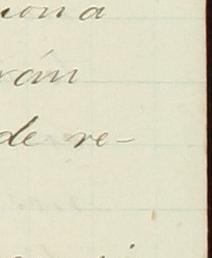 ción a
rán
de re-